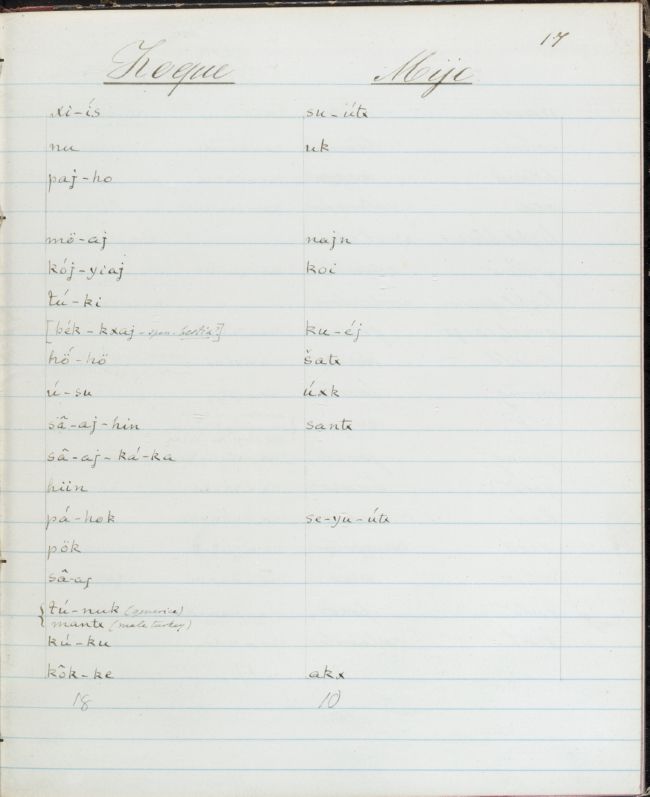 17
Zoque Mije
xi-ís su-útx
nu uk
paj-ho
mö-aj najn
kój-yiaj koi
tú-ki
[bék-kxaj - span. bestia?] ku-éj
hö́-hö šatx
ú-su úxk
sâ-aj-hin santx
sâ-aj-ká-ka
hiin
pá-hok se-yu-útx
pök
sâ-aj
tú-nuk (generic)
mantx (male turkey)
kú-ku
kôk-ke akx
18 10